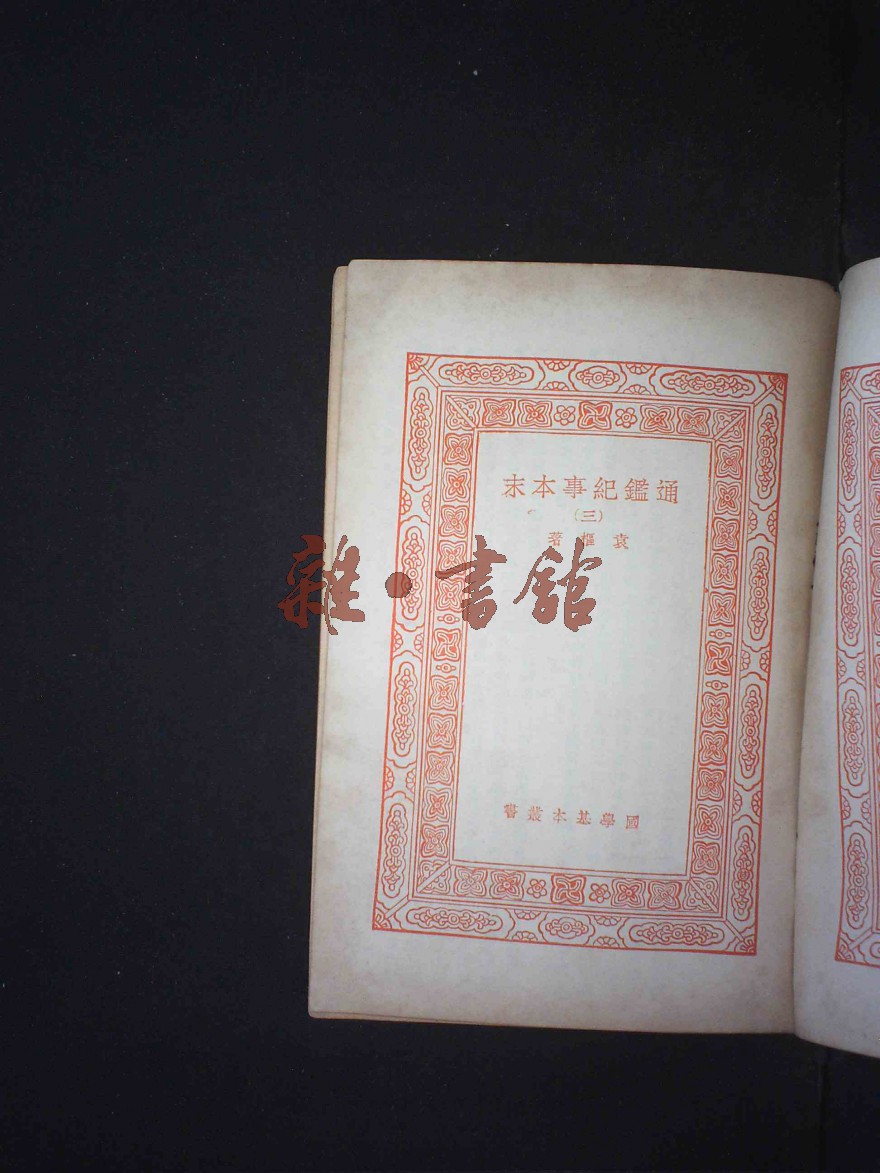 通鑑紀事本末
(三)
袁樞著
雜·書館
國學基本叢書